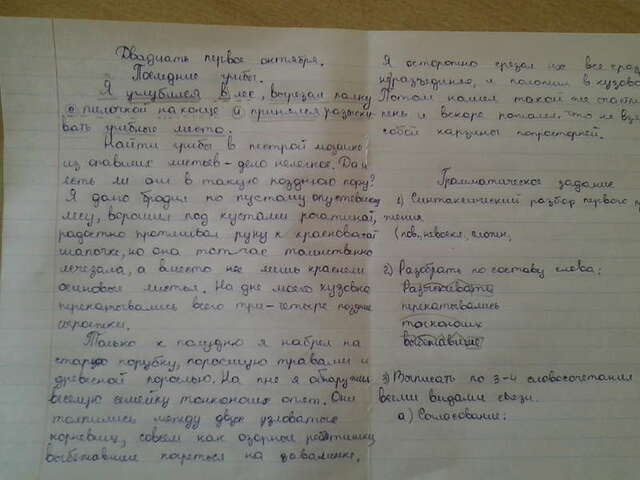 Двадцать первое октября.
Последние грибы.
Я углубился в лес, вырезал палку
с палочкой на конце и принялся разыски-
вать грибные места.
Найти грибы в пестрой мозаике
из опавших листьев - дело нелегкое. Да и
есть ли они в такую позднюю пору?
Я долго бродил по пустому опустевшему
лесу, ворошил под кустами рогатиной,
радостно протягивал руку к красноватой
шапочке, но она тотчас таинственно
исчезала, а вместо нее лишь краснели
осиновые листья. На дне моего кузовка
перекатывались всего три-четыре поздние
сыроежки.
Только к полудню я набрел на
старую порубку, поросшую травами и
древесной порослью. На пне я обнаружил
веселую семейку тонконогих опят. Они
толпились между двух узловатых
корневищ, совсем как озорные ребятишки
выбежавшие погреться на завалинке.
Я осторожно срезал их все сразу
не разъединяя, и положил в кузовок
Потом нашел такой же
пень и вскоре пожалел, что не взял
собой корзины попросторней.
Грамматическое задание
1) Синтаксический разбор первого пр
жения
(пов., невоскл., сложн,
2) Разобрать по составу слова:
Разыскивать
перекатывались
тонконогих
выбежавшие
3) Выписать по 3-4 словосочетания
всеми видами связи.
а) Согласование: